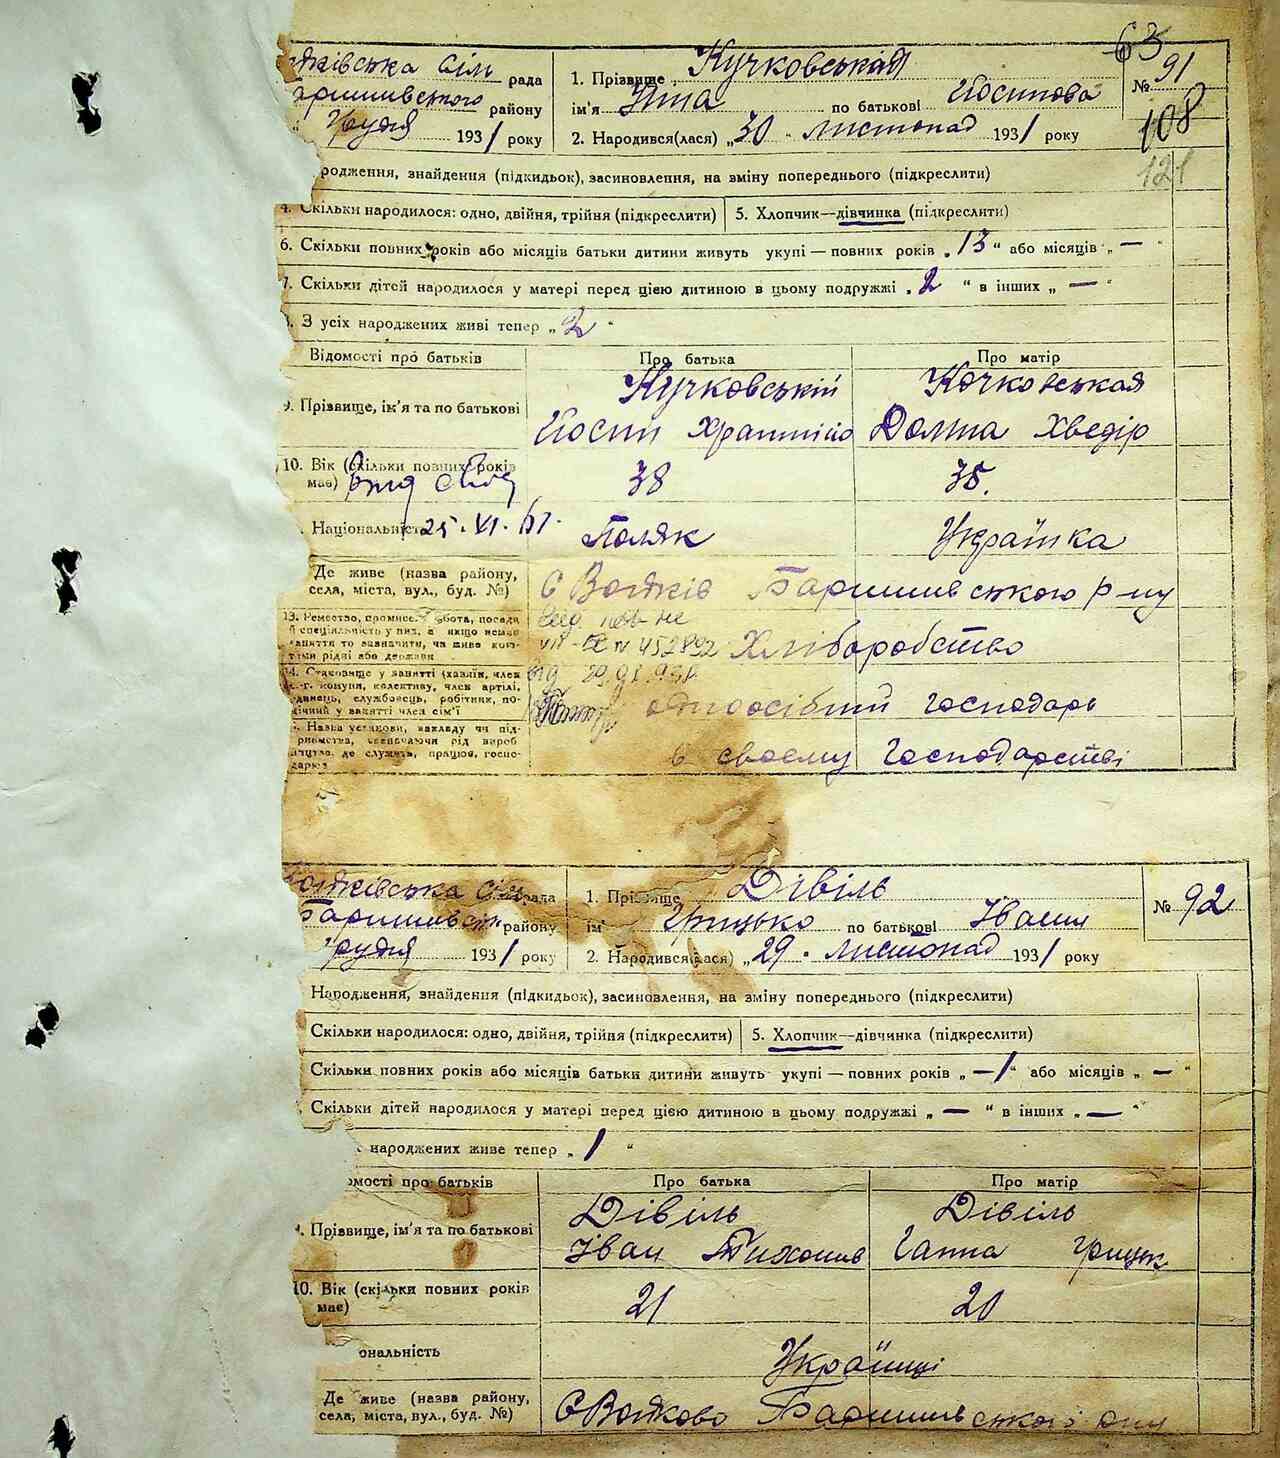 63
Сіл рада
району
Грудня 1931 року
1. Прізвище Кучковськая
ім'я Ніна по батькові Йосипова
2. Народився(лася) „30" листопад 1931 року
№ 91
108
121
родження, знайдення (підкидьок), засиновлення, на зміну попереднього (підкреслити)
4. Скільки народилося: одно, двійня, трійня (підкреслити)
5. Хлопчик—дівчинка (підкреслити)
6. Скільки повних років або місяців батьки дитини живуть укупі — повних років „13" або місяців „—"
7. Скільки дітей народилося у матері перед цією дитиною в цьому подружжі „2" в інших „—"
З усіх народжених живі тепер „2"
Відомості про батьків Про батька Про матір
9. Прізвище, ім'я та по батькові
Кучковській
Йосип
Кочковськая
Хведір
10. Вік (скільки повних років має)
38 35.
Національність 25. VI. 61.
Поляк Українка
Де живе (назва району, села, міста, вул., буд. №)
С Войків Баришивською р-ну
13. Ремество, промисел, робота, посада
№ 452892 Хліборобство
14. Становище у занятті (хазяїн, член
с.-г. комуни, колективу, член артілі,
службовець, робітник, по-
у занятті член сім'ї
одноосібний господарь
Назва установи, закладу чи під-
приємства, зазначаючи рід вироб
де служить, працює, госпо-
в своєму Господарстві
рада
Баришивськ району
Грудня 1931 року
1. Прізвище Дівіль
ім' Грицько по батькові Іванов
2. Народився(лася) „29" листопад 1931 року
№ 92
Народження, знайдення (підкидьок), засиновлення, на зміну попереднього (підкреслити)
Скільки народилося: одно, двійня, трійня (підкреслити)
5. Хлопчик—дівчинка (підкреслити)
Скільки повних років або місяців батьки дитини живуть укупі — повних років „—1" або місяців „—"
Скільки дітей народилося у матері перед цією дитиною в цьому подружжі „—" в інших „—"
народжених живе тепер „1"
омості про батьків Про батька Про матір
Прізвище, ім'я та по батькові
Дівіль
Іван Тихонов
Дівіль
Ганна Грицьк
10. Вік (скільки повних років має)
21 20
ональність
Українці
Де живе (назва району, села, міста, вул., буд. №)
С Войково Баришивського р-ну